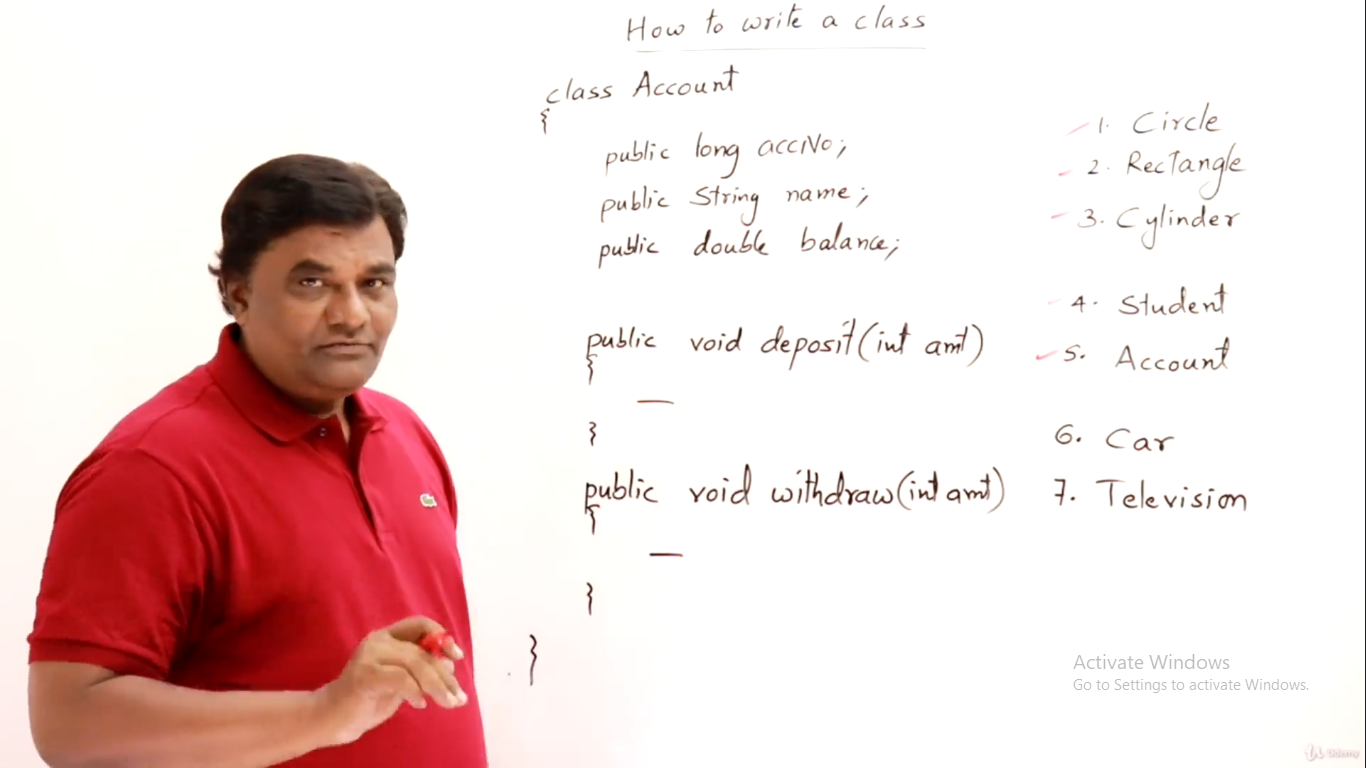 How to write a class
class Account
{
public long accNo;
public String name;
public double balance;
public void deposit(int amt)
{
—
}
public void withdraw(int amt)
{
—
}
}
1. Circle
2. Rectangle
3. Cylinder
4. Student
5. Account
6. Car
7. Television
Activate Windows
Go to Settings to activate Windows.
Udemy